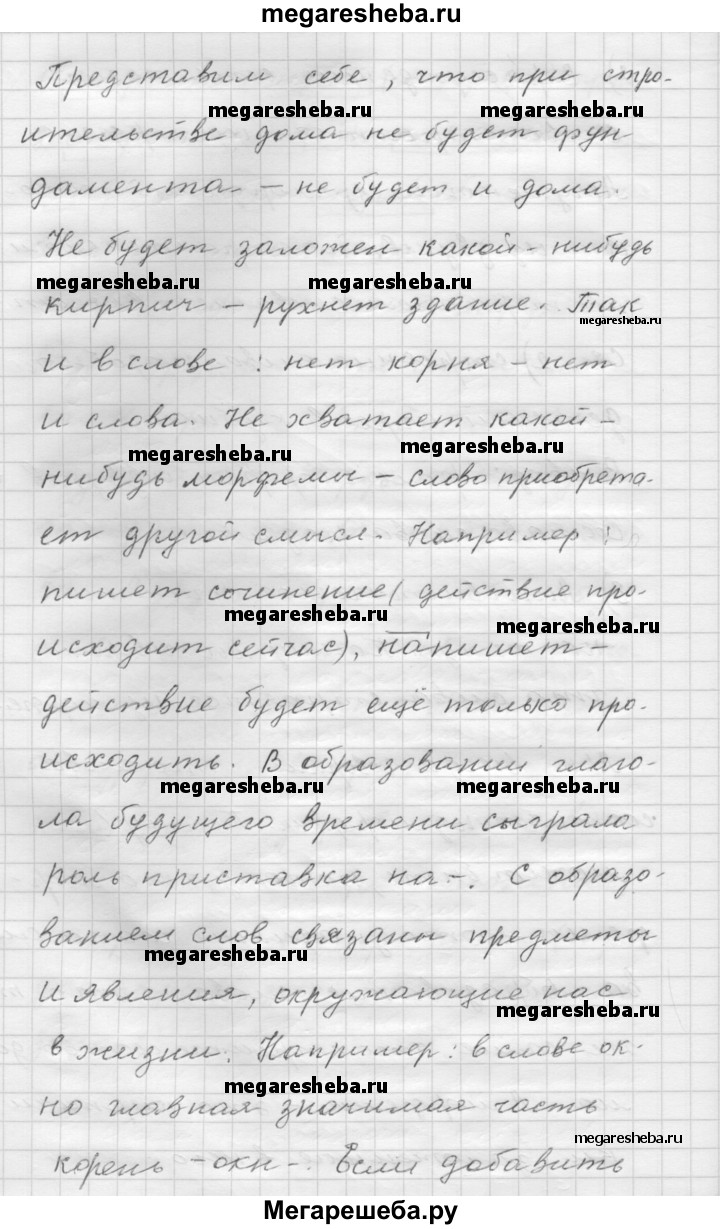 megaresheba.ru
Представим себе, что при стро-
megaresheba.ru megaresheba.ru
ительстве дома не будет фун
дамента - не будет и дома.
Не будет заложен какой-нибудь
megaresheba.ru megaresheba.ru
кирпич - рухнет здание. Так
megaresheba.ru
и в слове: нет корня - нет
и слова. Не хватает какой-
megaresheba.ru megaresheba.ru
нибудь морфемы - слово приобрета-
ет другой смысл. Например:
пишет сочинение (действие про-
megaresheba.ru megaresheba.ru
исходит сейчас), напишет -
действие будет ещё только про-
исходить. В образовании глаго-
megaresheba.ru megaresheba.ru
ла будущего времени сыграла
роль приставка на-. С образо-
ванием слов связаны предметы
megaresheba.ru
и явления, окружающие нас
megaresheba.ru
в жизни. Например: в слове ок-
megaresheba.ru
но главная значимая часть
megaresheba.ru
корень -окн-. Если добавить
Мегарешеба.ру